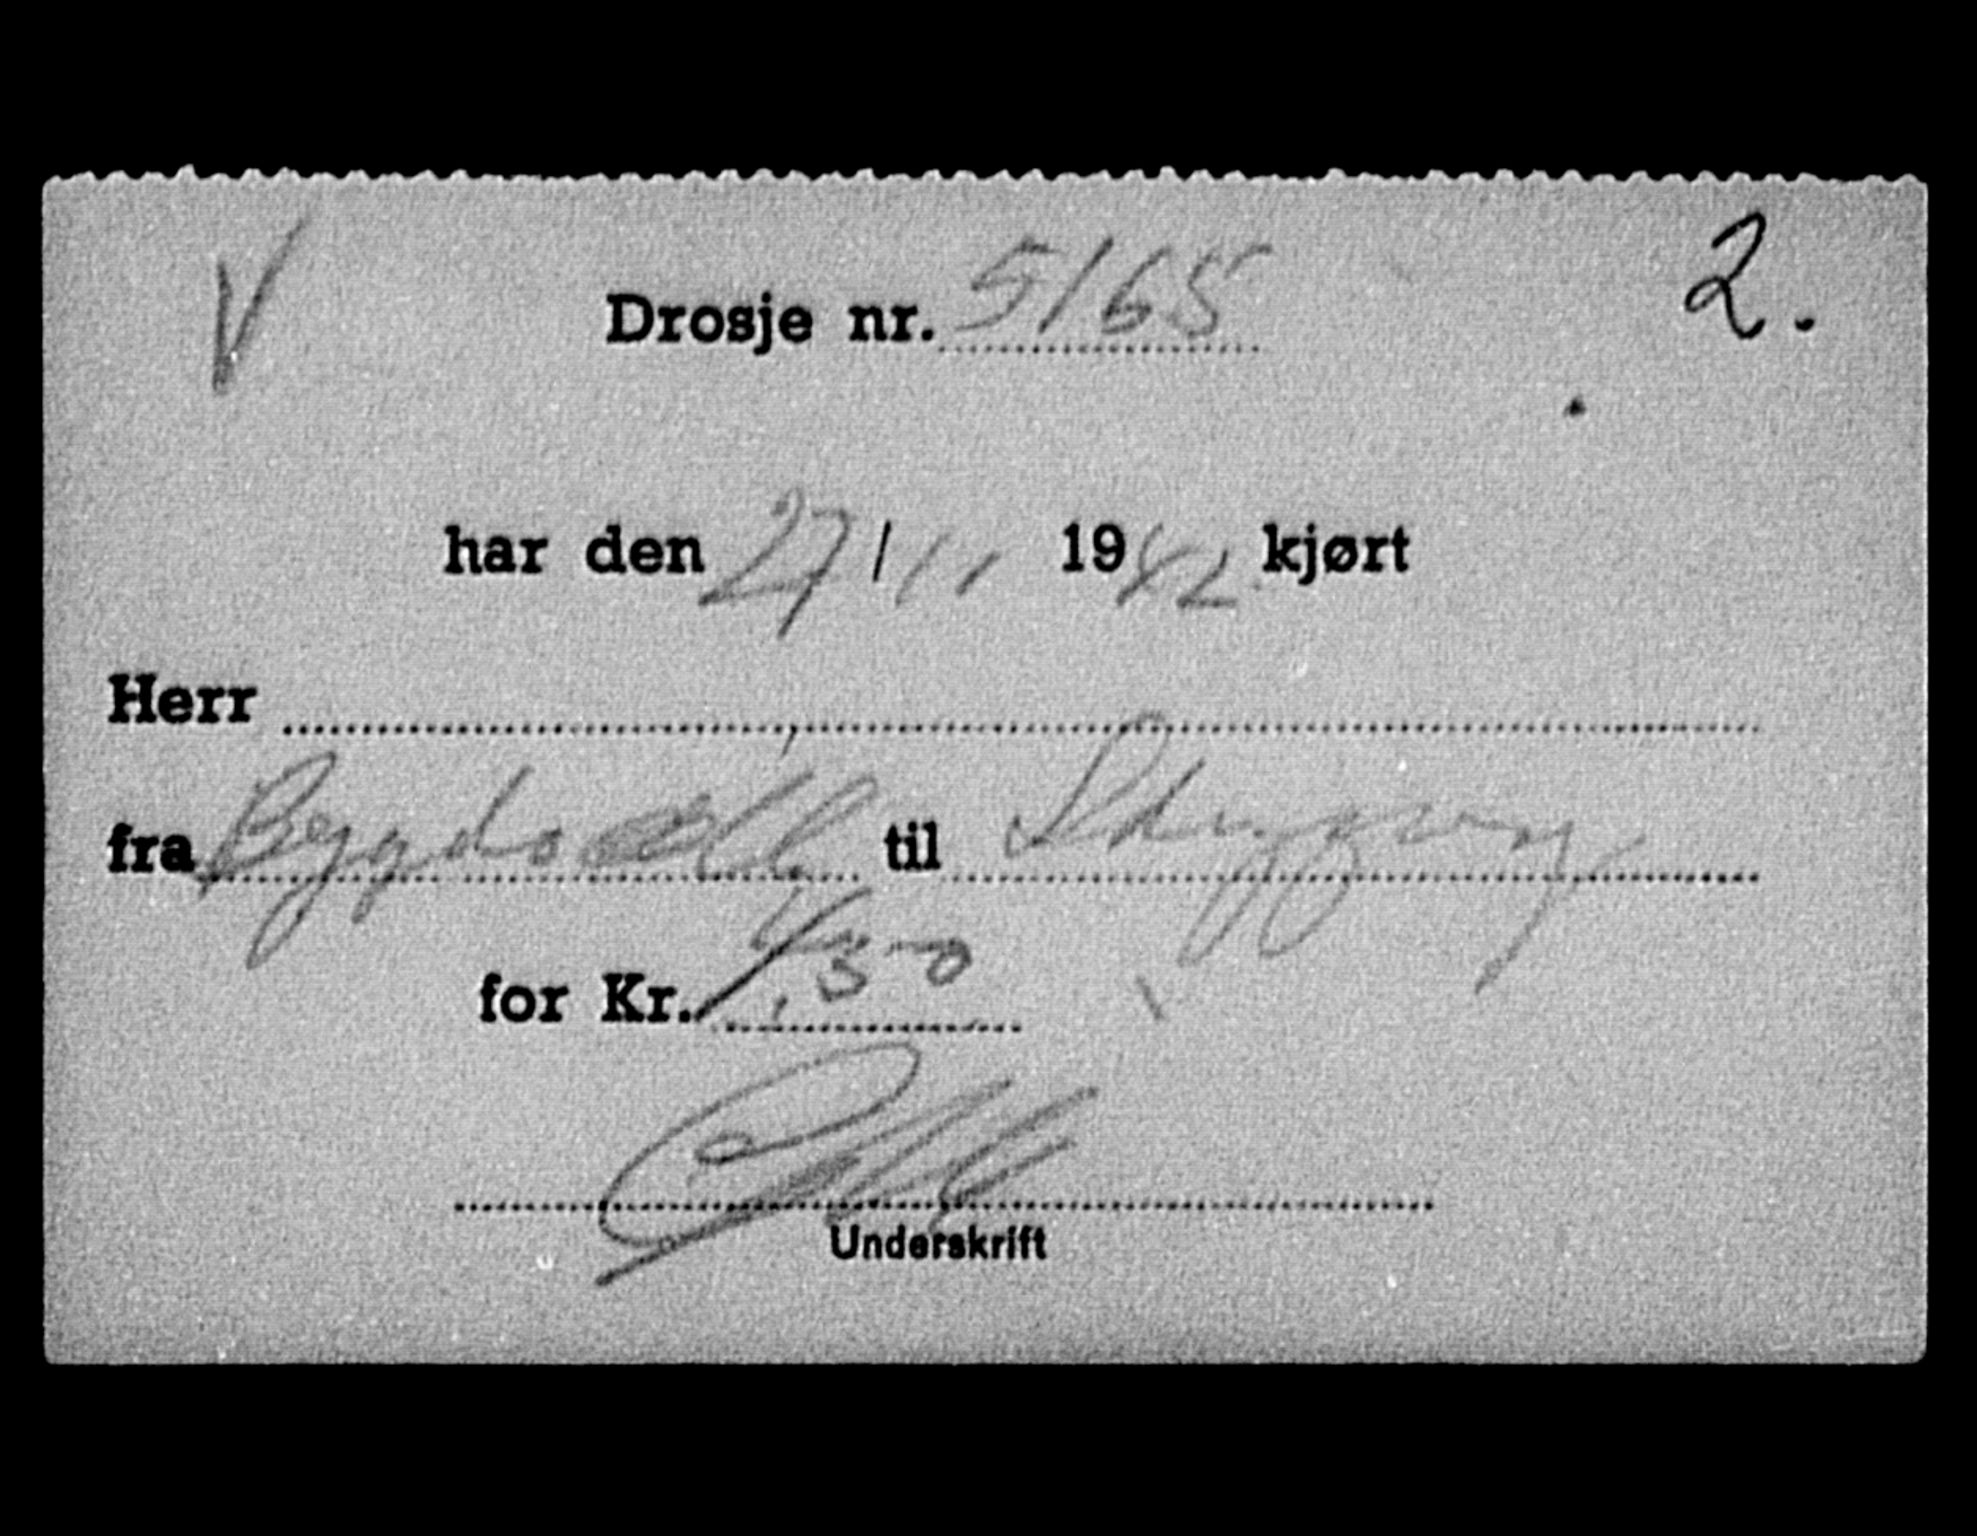 V 2.
Drosje nr. 5165
har den 27/11 1942 kjørt
Herr
fra Bygdø Allé til
for Kr. 4,50
Underskrift